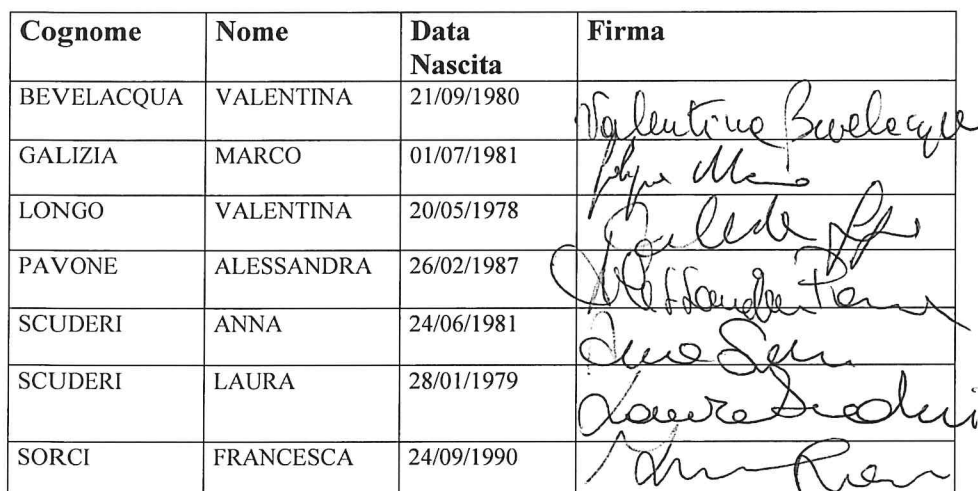 Cognome Nome Data Nascita Firma
BEVELACQUA VALENTINA 21/09/1980 Valentina Bevelacqua
GALIZIA MARCO 01/07/1981
LONGO VALENTINA 20/05/1978
PAVONE ALESSANDRA 26/02/1987 Alessandra
SCUDERI ANNA 24/06/1981 Anna
SCUDERI LAURA 28/01/1979 Laura Scuderi
SORCI FRANCESCA 24/09/1990